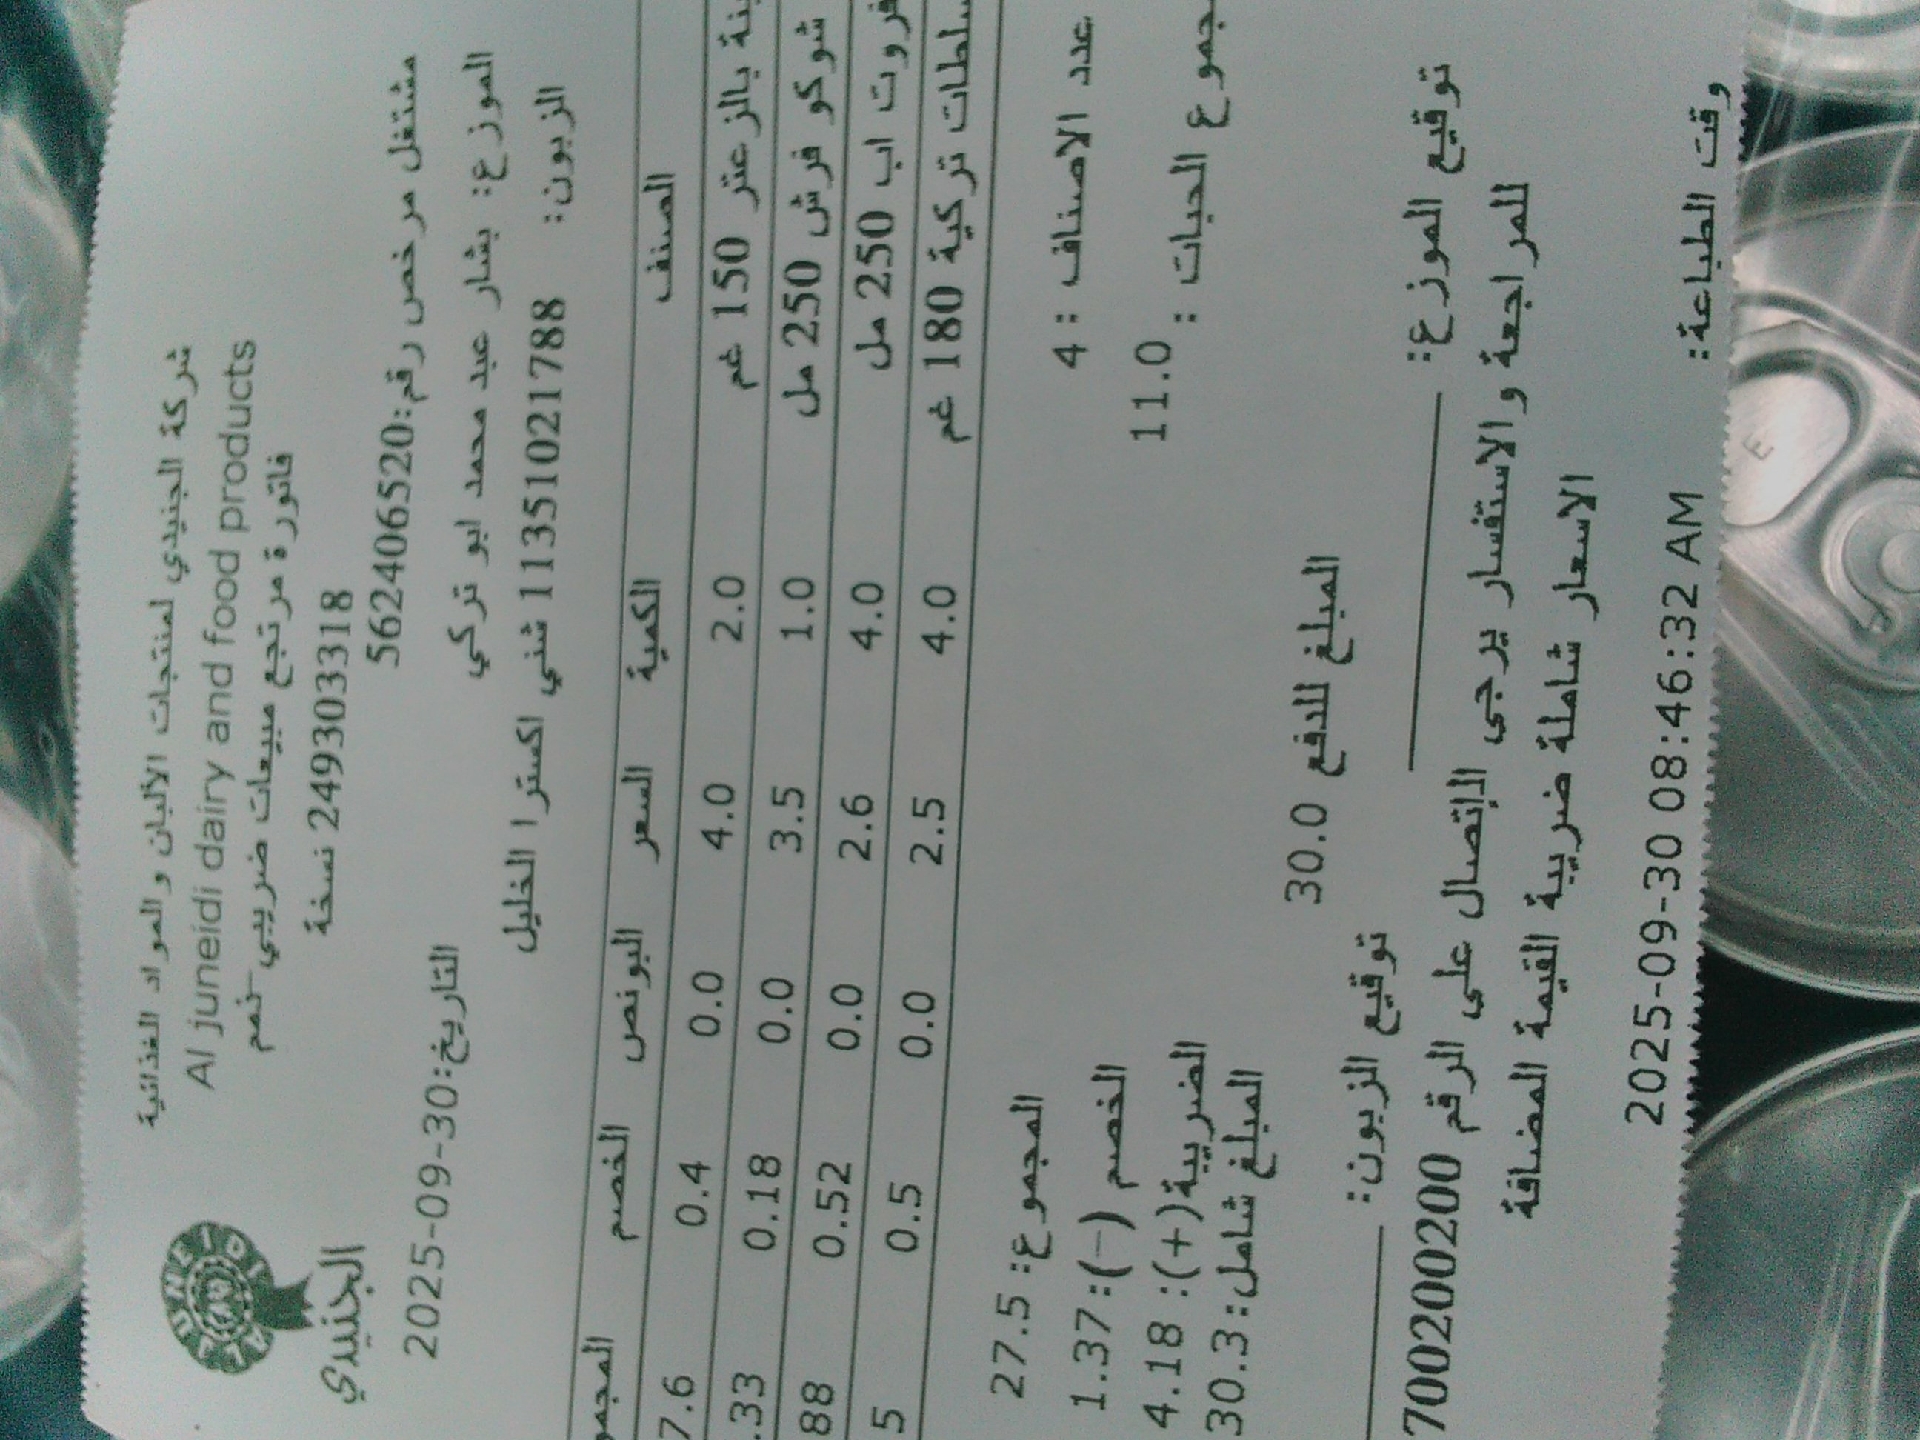 شركة الجنيدي لمنتجات الألبان والمواد الغذائية
Al juneidi dairy and food products
فاتورة مرتجع مبيعات ضريبي
249303318 نسخة
JUNEIDI
الجنيدي
مشتغل مرخص رقم:562406520
التاريخ:2025-09-30
الموزع: بشار عبد محمد ابو تركي
الزبون: 11351021788 شني اكسترا الخليل
الصنف الكمية السعر البونص الخصم
بالزعتر 150 غم 2.0 4.0 0.0 0.4 7.6
شوكو فرش 250 مل 1.0 3.5 0.0 0.18 .33
فروت اب 250 مل 4.0 2.6 0.0 0.52 88
سلطات تركية 180 غم 4.0 2.5 0.0 0.5 5
عدد الاصناف : 4
المجموع: 27.5
مجموع الحبات : 11.0
الخصم (-): 1.37
الضريبة(+): 4.18
المبلغ شامل: 30.3
المبلغ للدفع 30.0
توقيع الموزع:
توقيع الزبون:
للمراجعة والاستفسار يرجى الإتصال على الرقم 700200200
الاسعار شاملة ضريبة القيمة المضافة
وقت الطباعة: 2025-09-30 08:46:32 AM